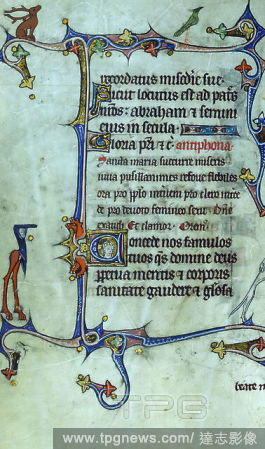 recordatus misc̄die sue
Sicut locutus est ad patr̄s
nr̄os: abraham et semini
eius in secula
Gloria pr̄i et c̄ antiphona
Sancta maria succurre miseris
iuva pusillanimes refove flebiles
ora pro pp̄lo interveni pro clero
pro devoto femineo sexu Dn̄e
exaudi Et clamor Orem̄
Concede nos famulos
tuos qs̄ domine deus
perpetua mentis et corporis
sanitate gaudere et gl̄osa
TPG
www.tpgnews.com/達志影像